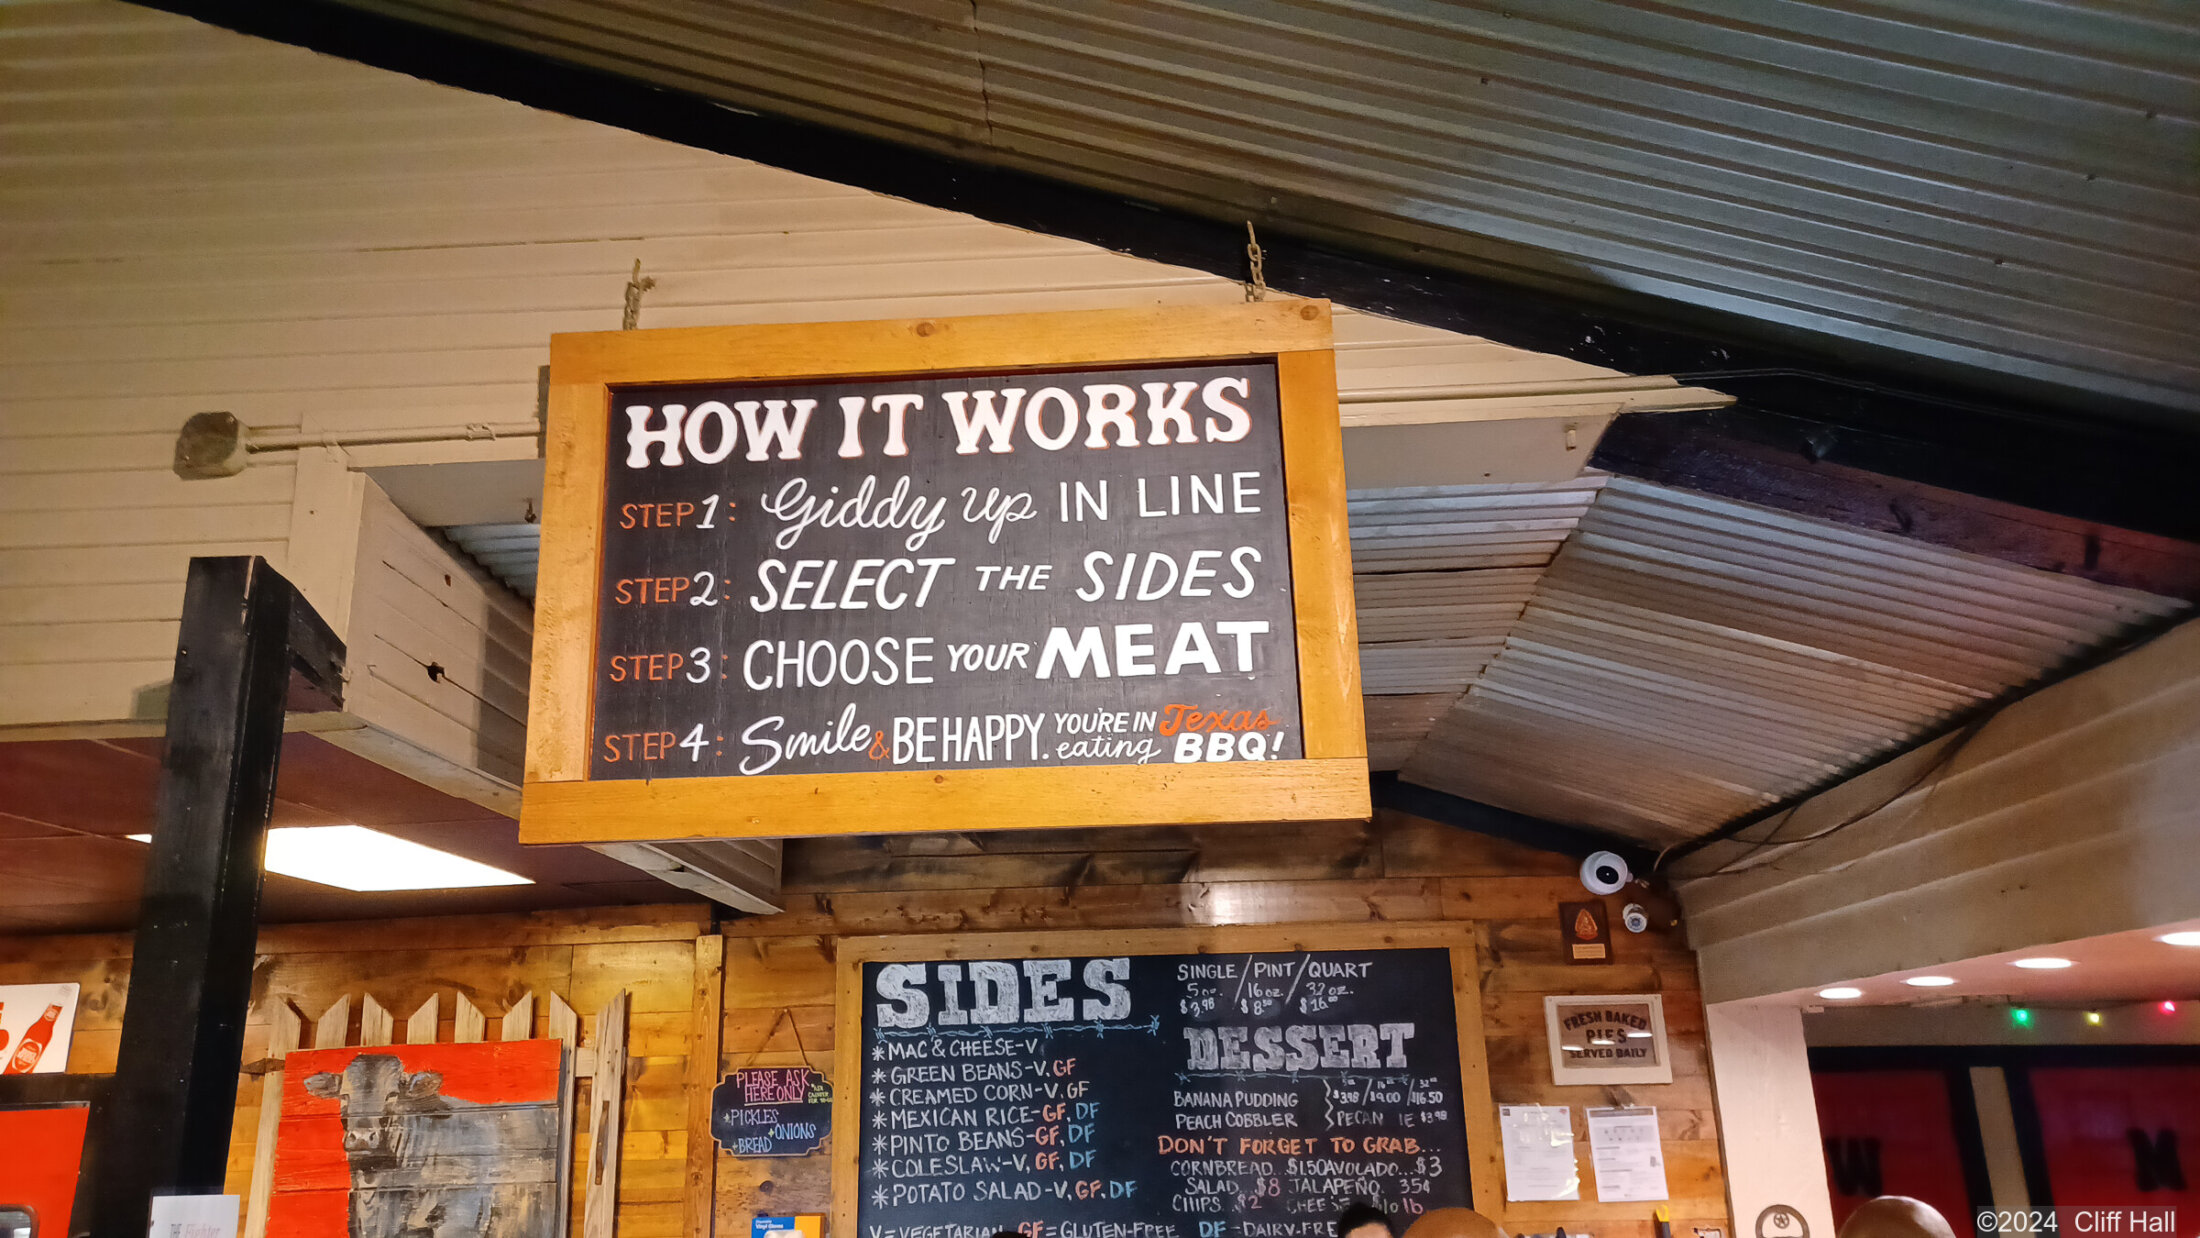 HOW IT WORKS
STEP 1: Giddy up IN LINE
STEP 2: SELECT THE SIDES
STEP 3: CHOOSE YOUR MEAT
STEP 4: Smile & BE HAPPY. YOU'RE IN Texas
eating BBQ!
SIDES
* MAC & CHEESE-V
* GREEN BEANS-V, GF
* CREAMED CORN-V, GF
* MEXICAN RICE-GF, DF
* PINTO BEANS-GF, DF
* COLESLAW-V, GF, DF
* POTATO SALAD-V, GF, DF
V=VEGETARIAN GF=GLUTEN-FREE DF-DAIRY-FRE
SINGLE/PINT/QUART
5oz. 16oz. 32oz.
$3.98 $8.50 $16.00
DESSERT
BANANA PUDDING $3.98/$9.00/$16.50
PEACH COBBLER PECAN IE $3.98
DON'T FORGET TO GRAB...
CORNBREAD $1.50 AVOLADO...$3
SALAD $8 JALAPEÑO. 35¢
CHIPS $2 CHEESE $10 lb
PLEASE ASK
HERE ONLY
+PICKLES
+ONIONS
+BREAD
FRESH BAKED
PIES
SERVED DAILY
THE
W
M
©2024 Cliff Hall